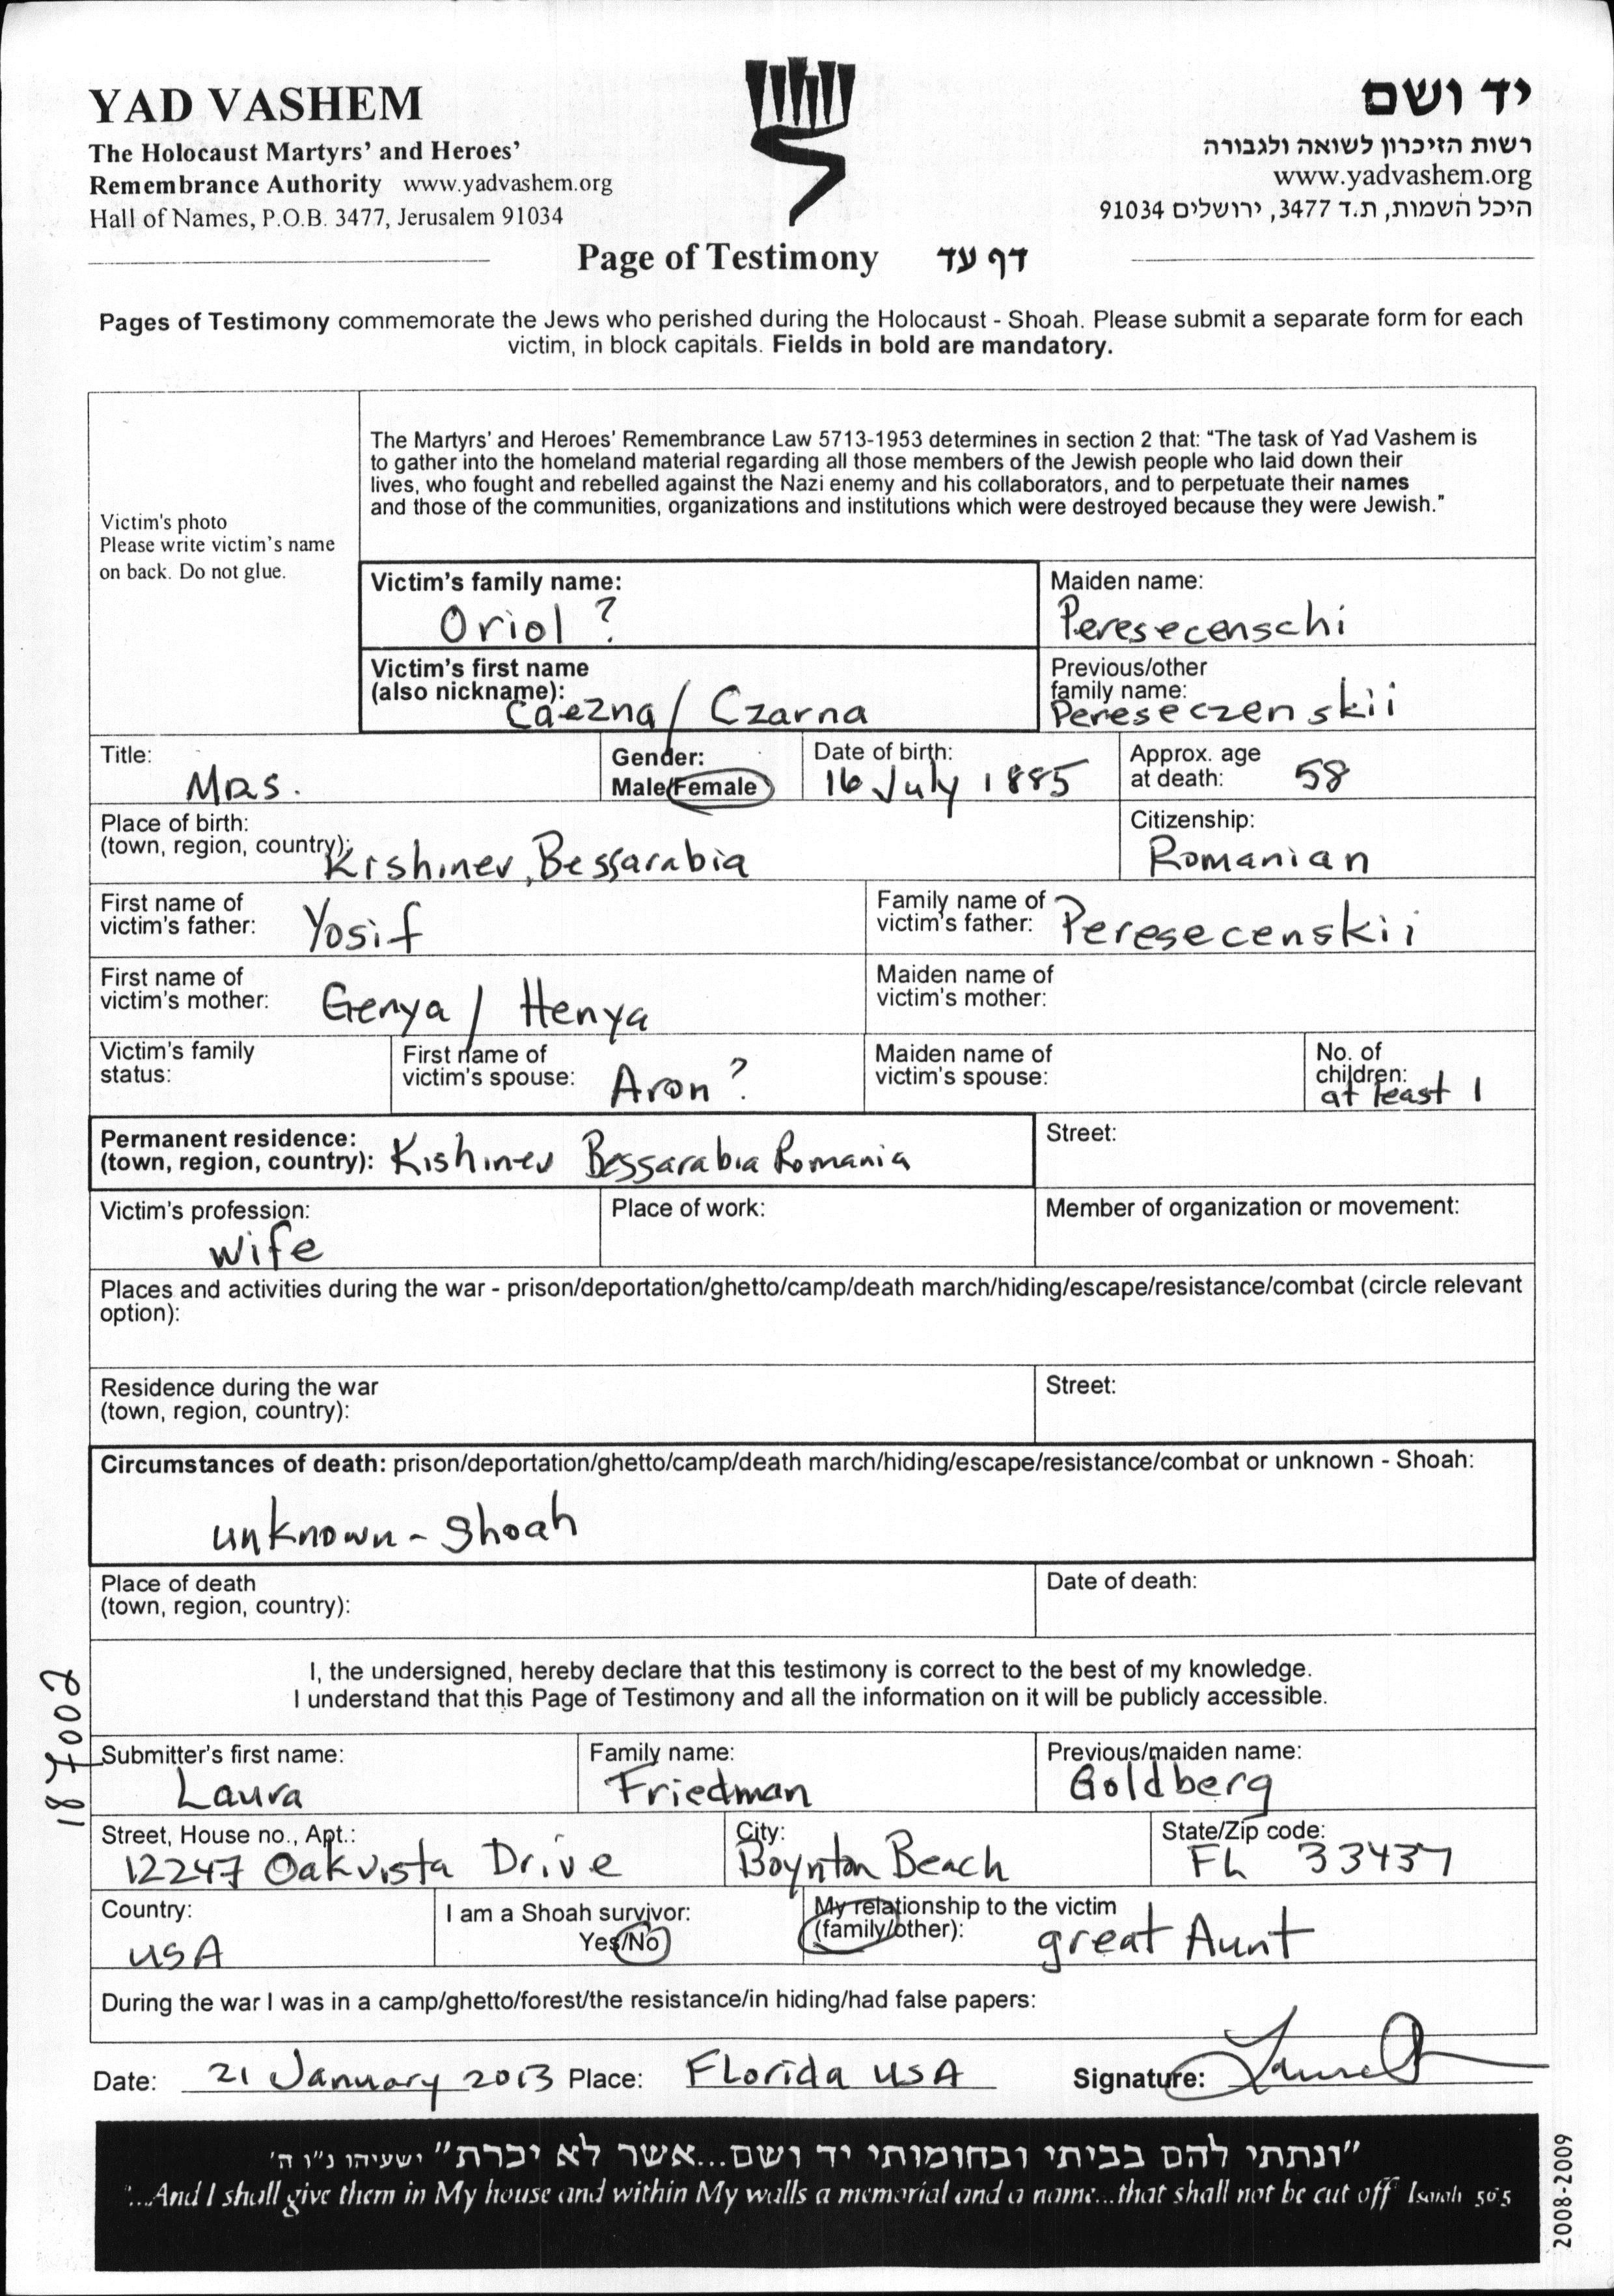 YAD VASHEM
The Holocaust Martyrs' and Heroes'
Remembrance Authority www.yadvashem.org
Hall of Names, P.O.B. 3477, Jerusalem 91034
יד ושם
רשות הזיכרון לשואה ולגבורה
www.yadvashem.org
היכל השמות, ת.ד 3477, ירושלים 91034
Page of Testimony דף עד
Pages of Testimony commemorate the Jews who perished during the Holocaust - Shoah. Please submit a separate form for each
victim, in block capitals. Fields in bold are mandatory.
Victim's photo
Please write victim's name
on back. Do not glue.
The Martyrs' and Heroes' Remembrance Law 5713-1953 determines in section 2 that: "The task of Yad Vashem is
to gather into the homeland material regarding all those members of the Jewish people who laid down their
lives, who fought and rebelled against the Nazi enemy and his collaborators, and to perpetuate their names
and those of the communities, organizations and institutions which were destroyed because they were Jewish."
Victim's family name:
Oriol ?
Maiden name:
Peresecenschi
Victim's first name
(also nickname):
Caezna / Czarna
Previous/other
family name:
Pereseczenskii
Title:
Mrs.
Gender:
Male/Female
Date of birth:
16 July 1885
Approx. age
at death: 58
Place of birth:
(town, region, country): Kishinev, Bessarabia
Citizenship:
Romanian
First name of
victim's father: Yosif
Family name of
victim's father: Peresecenskii
First name of
victim's mother: Genya / Henya
Maiden name of
victim's mother:
Victim's family
status:
First name of
victim's spouse: Aron ?
Maiden name of
victim's spouse:
No. of
children:
at least 1
Permanent residence:
(town, region, country): Kishinev Bessarabia Romania
Street:
Victim's profession:
wife
Place of work:
Member of organization or movement:
Places and activities during the war - prison/deportation/ghetto/camp/death march/hiding/escape/resistance/combat (circle relevant
option):
Residence during the war
(town, region, country):
Street:
Circumstances of death: prison/deportation/ghetto/camp/death march/hiding/escape/resistance/combat or unknown - Shoah:
unknown - Shoah
Place of death
(town, region, country):
Date of death:
I, the undersigned, hereby declare that this testimony is correct to the best of my knowledge.
I understand that this Page of Testimony and all the information on it will be publicly accessible.
187002
Submitter's first name:
Laura
Family name:
Friedman
Previous/maiden name:
Goldberg
Street, House no., Apt.:
12247 Oakvista Drive
City:
Boynton Beach
State/Zip code:
FL 33437
Country:
USA
I am a Shoah survivor:
Yes/No
My relationship to the victim
(family/other): great Aunt
During the war I was in a camp/ghetto/forest/the resistance/in hiding/had false papers:
Date: 21 January 2013 Place: Florida USA Signature:
"ונתתי להם בביתי ובחומותי יד ושם...אשר לא יכרת" ישעיהו נ"ו ה'
"...And I shall give them in My house and within My walls a memorial and a name...that shall not be cut off" Isaiah 56:5
2008-2009